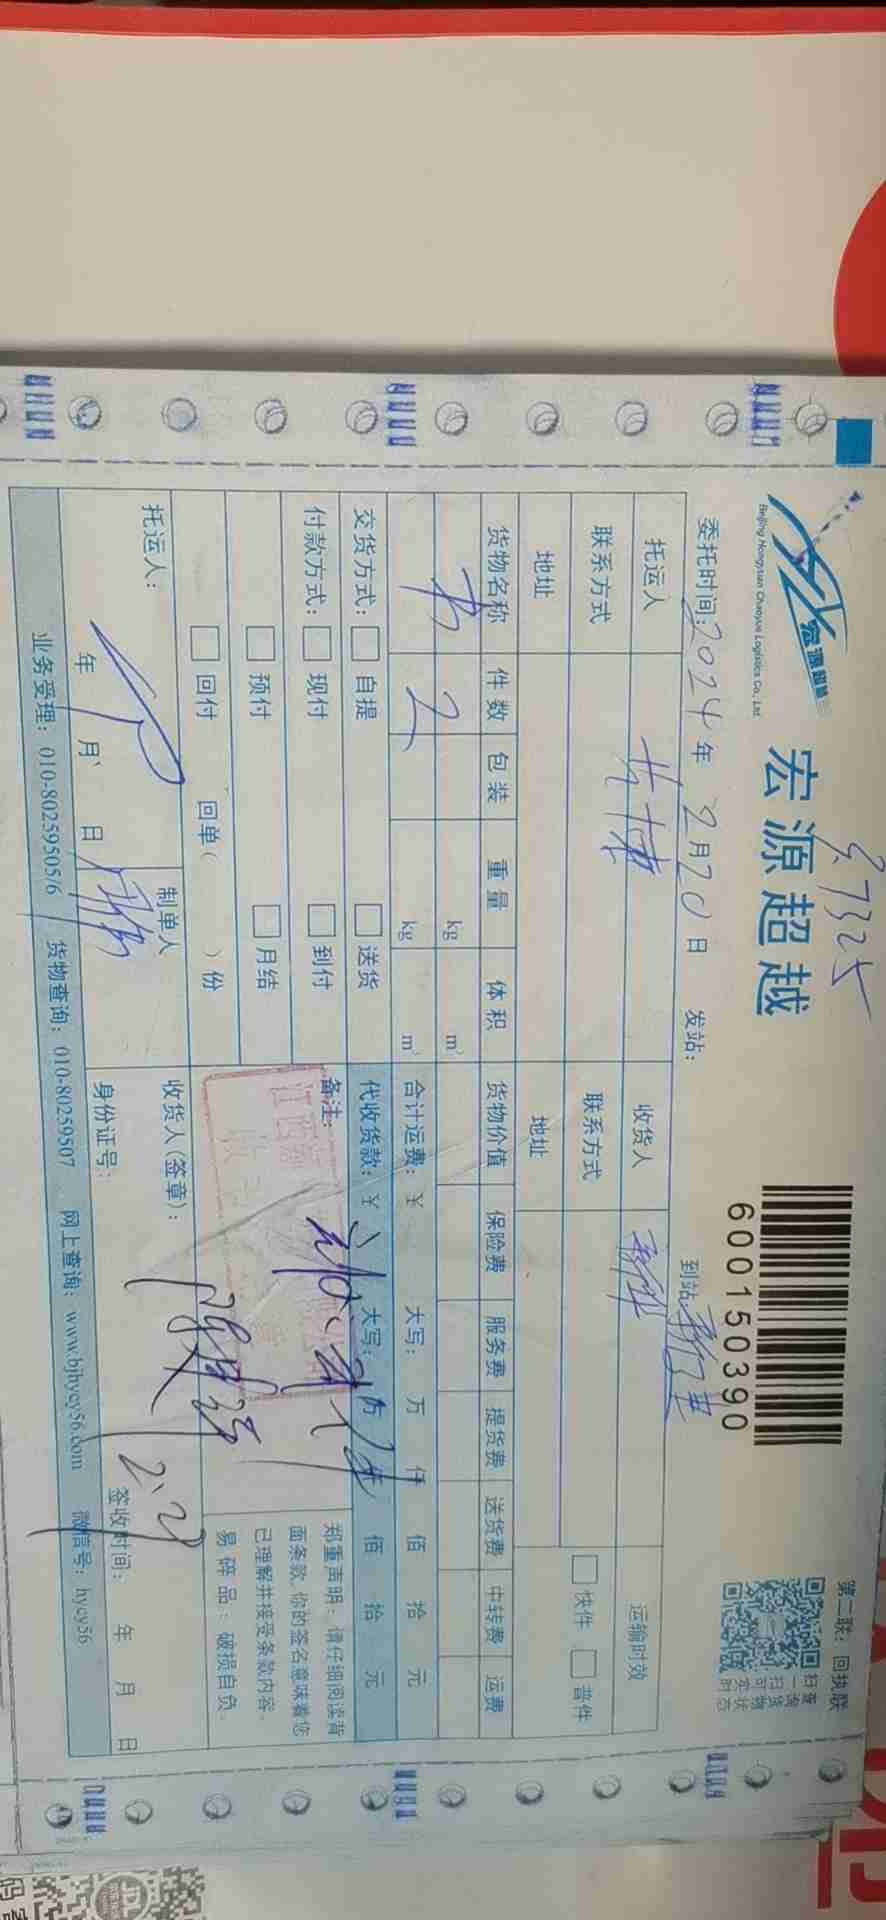 宏源超越
Beijing Hongyuan Chaoyue Logistics Co., Ltd
宏源超越
600150390
第二联：回执联
扫查
一询
扫货
可物
实状
时态
委托时间：2024年2月20日 发站： 到站
托运人 收货人 运输时效
联系方式 联系方式 快件 普件
地址 地址
货物名称 件数 包装 重量 体积 货物价值 保险费 服务费 提货费 送货费 中转费 运费
书 2 kg m³
kg m³ 合计运费：￥ 大写： 万 仟 佰 拾 元
交货方式： 自提 送货 代收货款：￥ 大写： 万 仟 佰 拾 元
付款方式： 现付 到付 备注：
预付 月结
回付 回单（ ）份
郑重声明：请仔细阅读背
面条款，你的签名意味着您
已理解并接受条款内容。
易碎品：破损自负。
托运人： 制单人 收货人(签章)：
年 月 日 身份证号： 签收时间： 年 月 日
业务受理：010-80259505/6 货物查询：010-80259507 网上查询：www.bjhycy56.com 微信号：hycy56